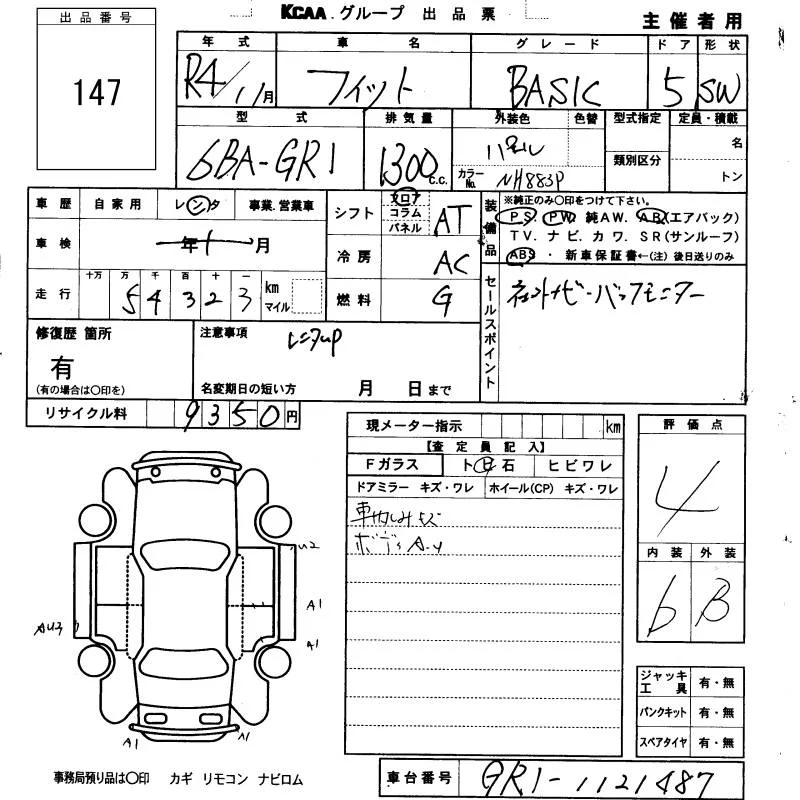 KCAA.グループ 出品票
主催者用
出品番号
147
年式 車名 グレード ドア 形状
R4/11月 フィット BASIC 5 SW
型式 排気量 外装色 色替 型式指定 定員・積載
6BA-GR1 1300 C.C. パール カラーNo. NH883P 類別区分 名 トン
車歴 自家用 レンタ 事業.営業車
シフト フロア コラム パネル AT
装備品 ※純正のみ〇印をつけて下さい。
PS. PW. 純AW. AB(エアバック)
TV. ナビ. カワ. SR(サンルーフ)
ABS ・ 新車保証書←(注) 後日送りのみ
車検 年 月
冷房 AC
走行 十万 万 千 百 十 一
5 4 3 2 3 km マイル
燃料 G
セールスポイント
修復歴 箇所
有
(有の場合は〇印を)
注意事項
レンタup
名変期日の短い方 月 日まで
リサイクル料 9350円
現メーター指示 km
【査定員記入】
Fガラス ト ビ 石 ヒビワレ
ドアミラー キズ・ワレ ホイール(CP) キズ・ワレ
車内しみキズ
ボディA.U
評価点
4
内装 外装
b B
AU2
A1
A1
AU3
A1
A1
ジャッキ工具 有・無
パンクキット 有・無
スペアタイヤ 有・無
事務局預り品は〇印 カギ リモコン ナビロム
車台番号 GR1-1121487